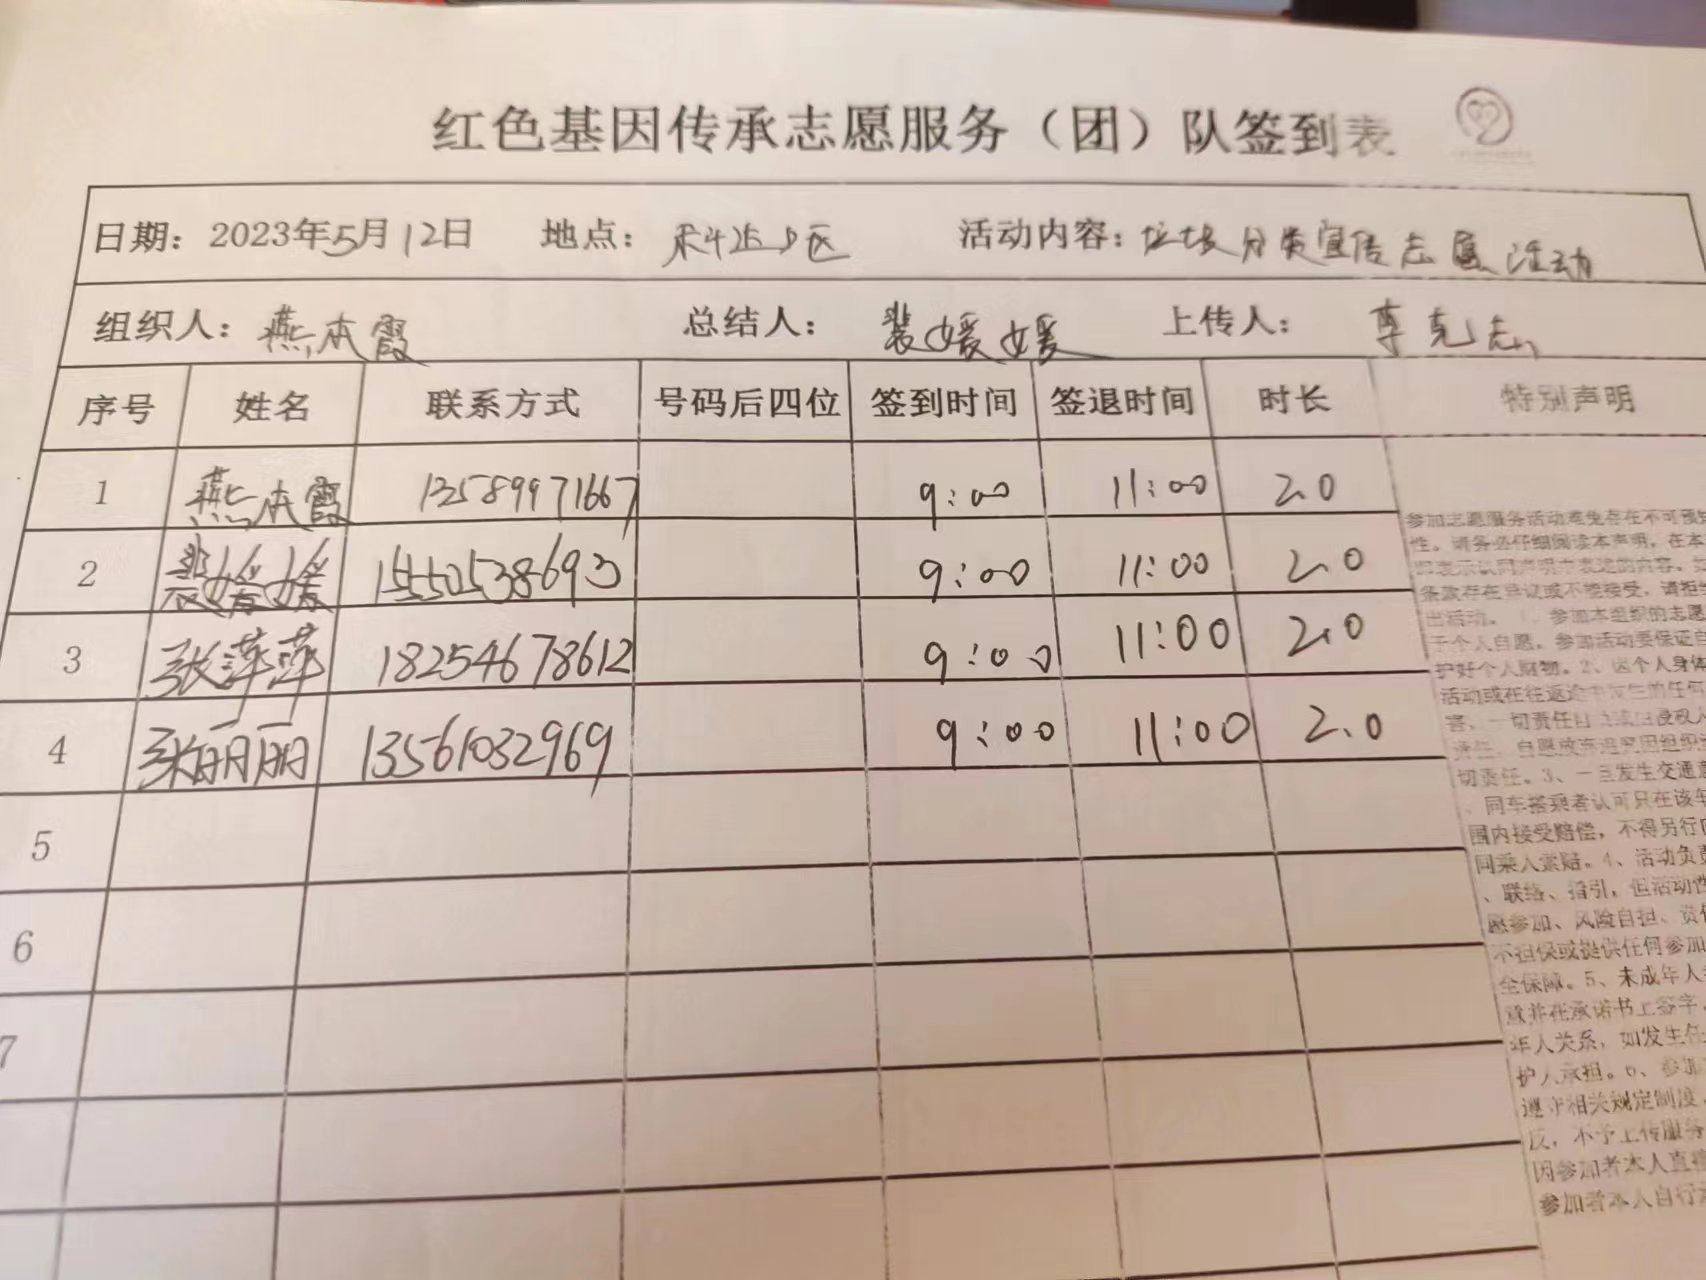 红色基因传承志愿服务（团）队签到表
日期：2023年5月12日 地点： 活动内容：垃圾分类宣传志愿活动
组织人：燕本霞 总结人：裴媛媛 上传人：李克志
序号 姓名 联系方式 号码后四位 签到时间 签退时间 时长 特别声明
1 燕本霞 13589971667 9:00 11:00 2.0
2 裴媛媛 15505538693 9:00 11:00 2.0
3 张萍萍 18254678612 9:00 11:00 2.0
4 张丽丽 13561032969 9:00 11:00 2.0
5
6
7
参加志愿服务活动难免存在不可预
性。请务必仔细阅读本声明，在本
即表示认同声明中表述的内容。
条款存在异议或不能接受，请拒
出活动。1、参加本组织的志愿
于个人自愿。参加活动要保证自
护好个人财物。2、因个人身体
活动或在往返途中发生的任何
害，一切责任自
责任，自愿放弃追究因组织
切责任。3、一旦发生交通意
，同车搭乘者认可只在该车
围内接受赔偿，不得另行向
同乘人索赔。4、活动负责
、联络、指引，但活动性
愿参加、风险自担、责任
不担保或提供任何参加
全保障。5、未成年人
意并在承诺书上签字，
年人关系，如发生任
护人承担。6、参加
遵守相关规定制度，
反，不予上传服务
因参加者本人直接
参加者本人自行